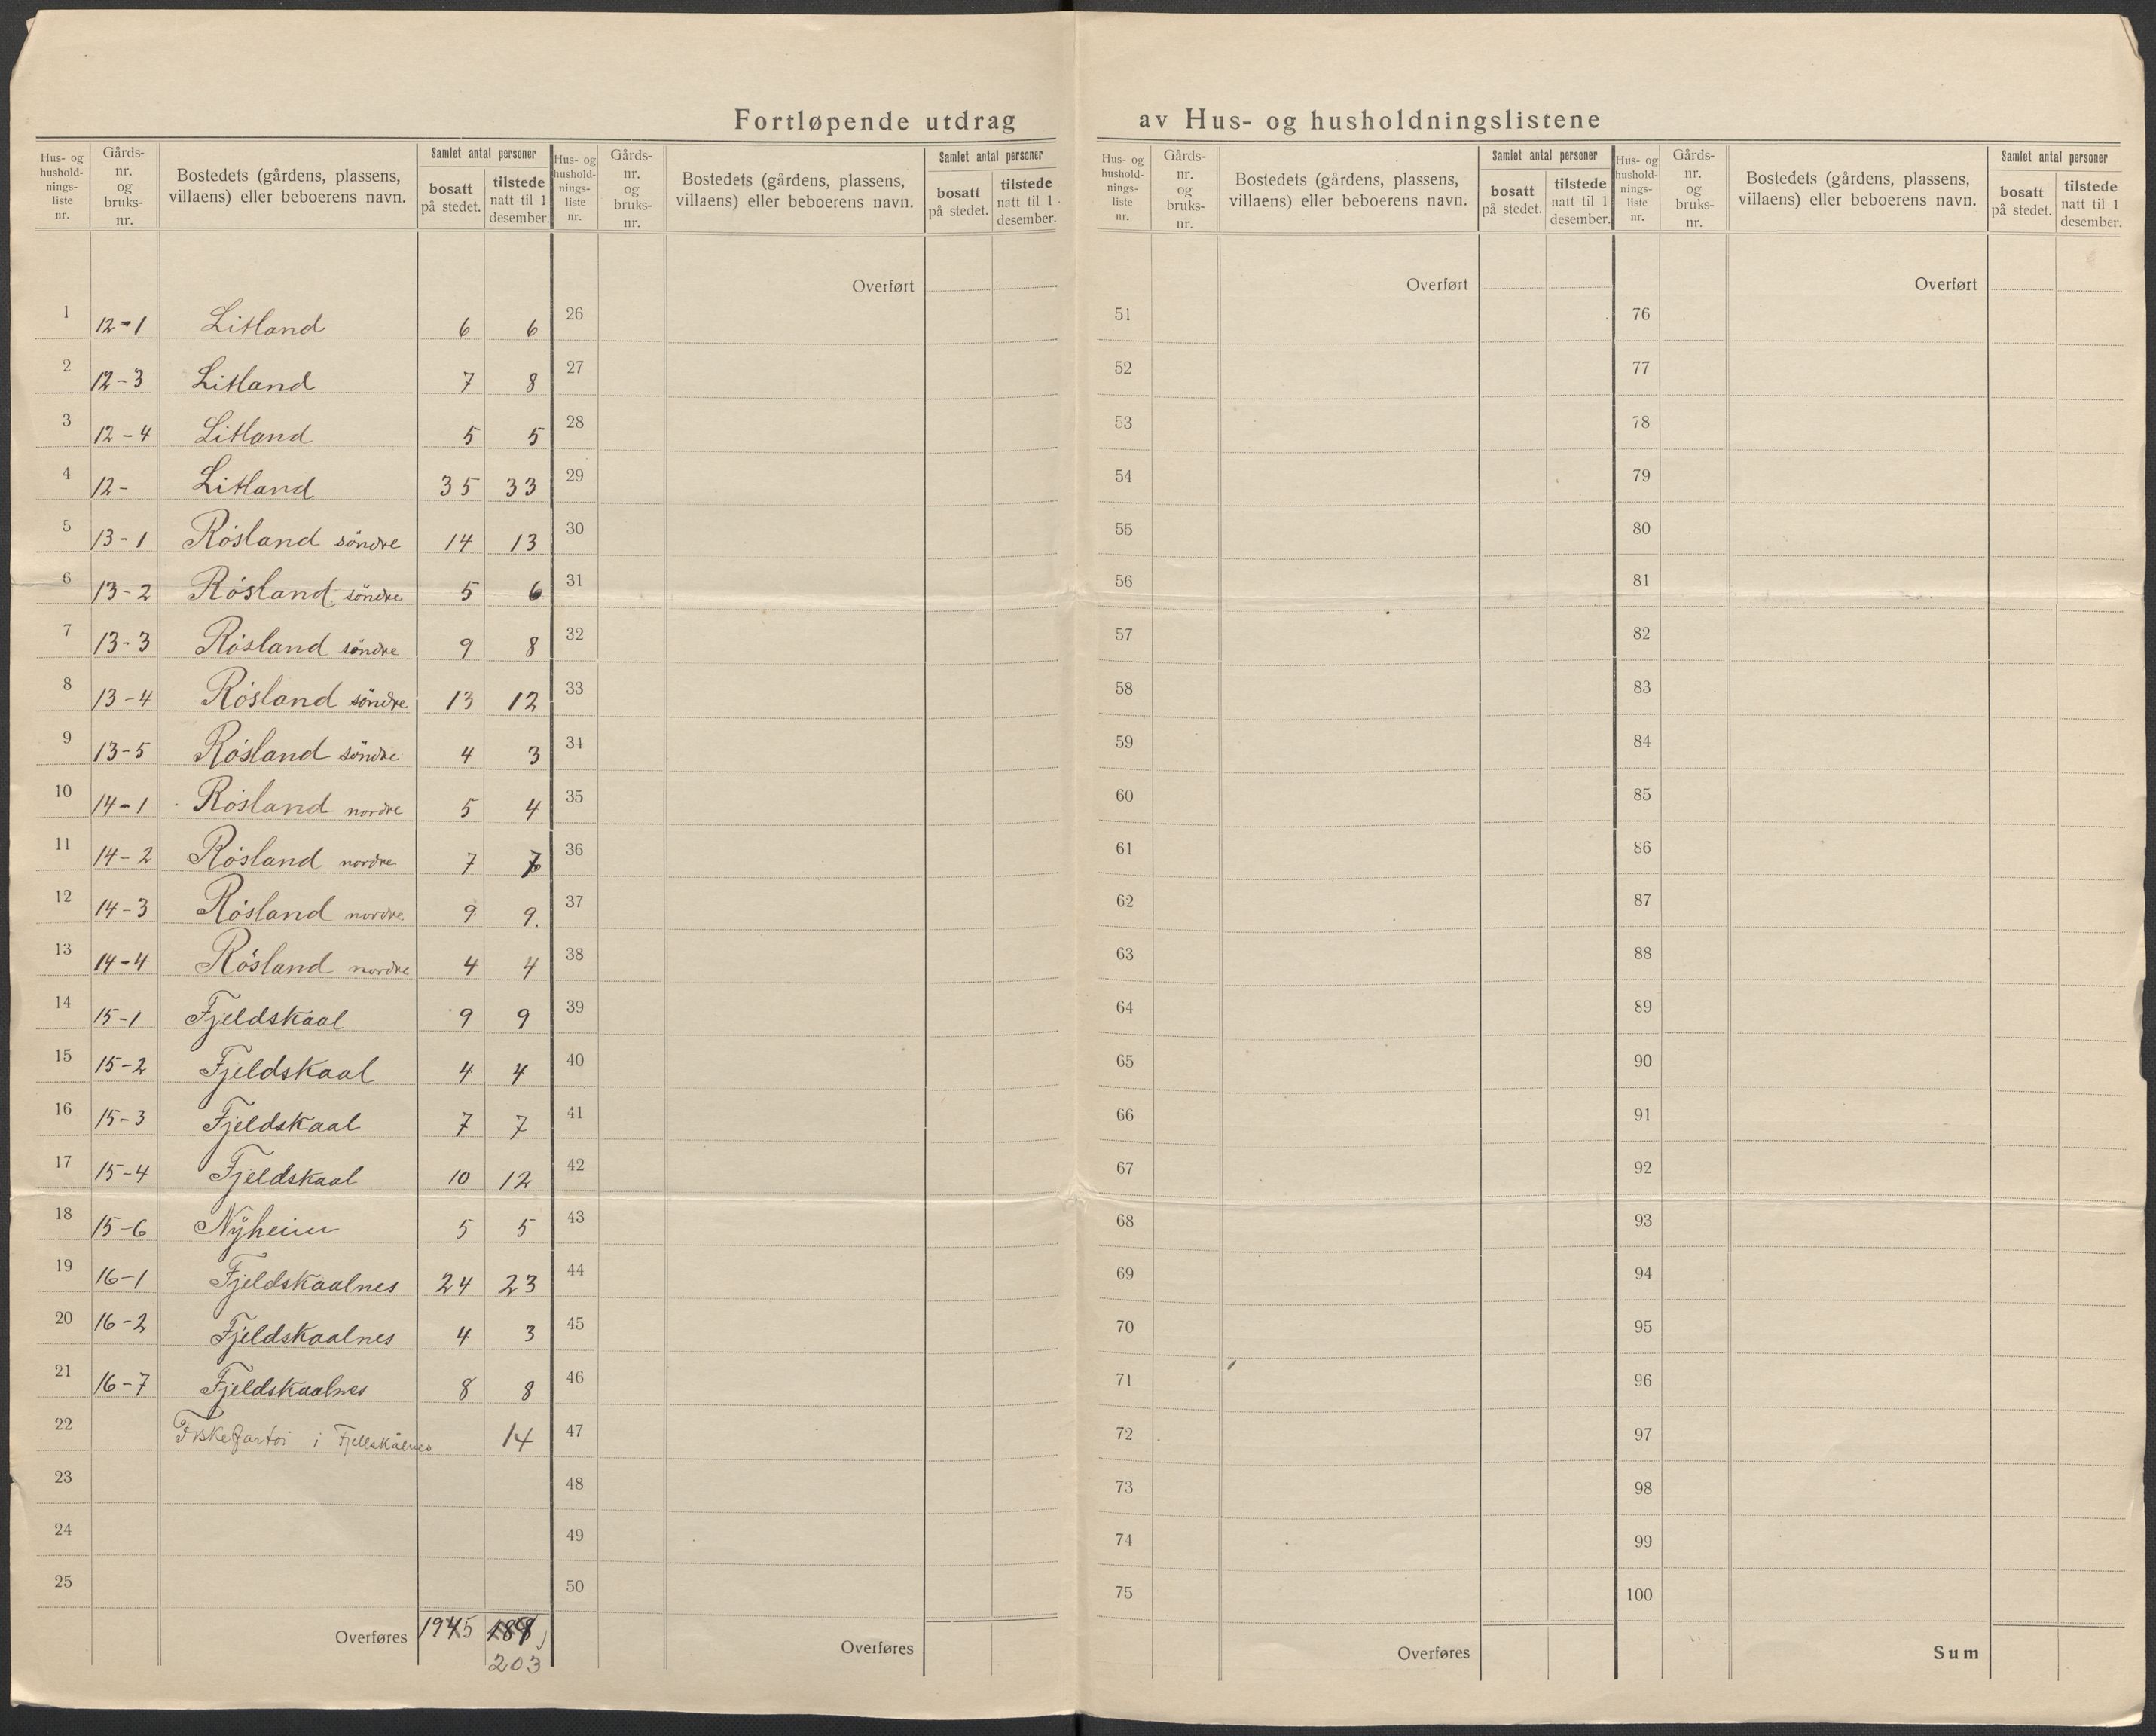 Fortløpende utdrag av Hus- og husholdningslistene
Hus- og hushold-nings-liste nr. Gårds-nr. og bruks-nr. Bostedets (gårdens, plassens, villaens) eller beboerens navn. Samlet antal personer bosatt på stedet. tilstede natt til 1 desember.
Hus- og hushold-nings-liste nr. Gårds-nr. og bruks-nr. Bostedets (gårdens, plassens, villaens) eller beboerens navn. Samlet antal personer bosatt på stedet. tilstede natt til 1 desember.
Hus- og hushold-nings-liste nr. Gårds-nr. og bruks-nr. Bostedets (gårdens, plassens, villaens) eller beboerens navn. Samlet antal personer bosatt på stedet. tilstede natt til 1 desember.
Hus- og hushold-nings-liste nr. Gårds-nr. og bruks-nr. Bostedets (gårdens, plassens, villaens) eller beboerens navn. Samlet antal personer bosatt på stedet. tilstede natt til 1 desember.
Overført Overført Overført
1 12-1 Litland 6 6 26 51 76
2 12-3 Litland 7 8 27 52 77
3 12-4 Litland 5 5 28 53 78
4 12- Litland 35 33 29 54 79
5 13-1 Røsland söndre 14 13 30 55 80
6 13-2 Røsland söndre 5 6 31 56 81
7 13-3 Røsland söndre 9 8 32 57 82
8 13-4 Røsland söndre 13 12 33 58 83
9 13-5 Røsland söndre 4 3 34 59 84
10 14-1 Røsland nordre 5 4 35 60 85
11 14-2 Røsland nordre 7 36 61 86
12 14-3 Røsland nordre 9 9. 37 62 87
13 14-4 Røsland nordre 4 4 38 63 88
14 15-1 Fjeldskaal 9 9 39 64 89
15 15-2 Fjeldskaal 4 4 40 65 90
16 15-3 Fjeldskaal 7 7 41 66 91
17 15-4 Fjeldskaal 10 12 42 67 92
18 15-6 Nÿheim 5 5 43 68 93
19 16-1 Fjeldskaalnes 24 23 44 69 94
20 16-2 Fjeldskaalnes 4 3 45 70 95
21 16-7 Fjeldskaalnes 8 8 46 71 96
22 Fiskefartøi i Fjellskålnes 14 47 72 97
23 48 73 98
24 49 74 99
25 50 75 100
Overføres 1945 Overføres Overføres Sum
203